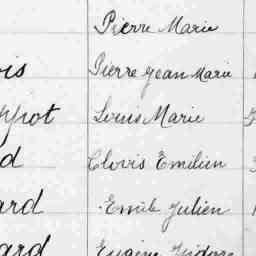 Pierre Marie
Pierre Jean Marie
Louis Marie
d Clovis Emilien
ard Emile Julien
ard Eugène Isidore